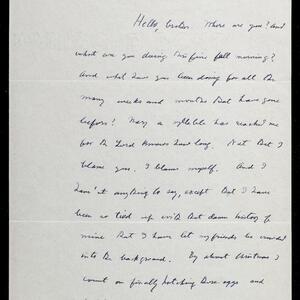 Hello, brother. Where are you? And
what are you doing this fine fall morning?
And what have you been doing for all the
many weeks and months that have gone
before? Nary a syllable has reached me
for the Lord knows how long. Not that I
blame you. I blame myself. And I
haven't anything to say, except that I have
been so tied up with that damn history of
mine that I have let my friends be crowded
into the background. By about Christmas I
count on finally hatching these eggs and